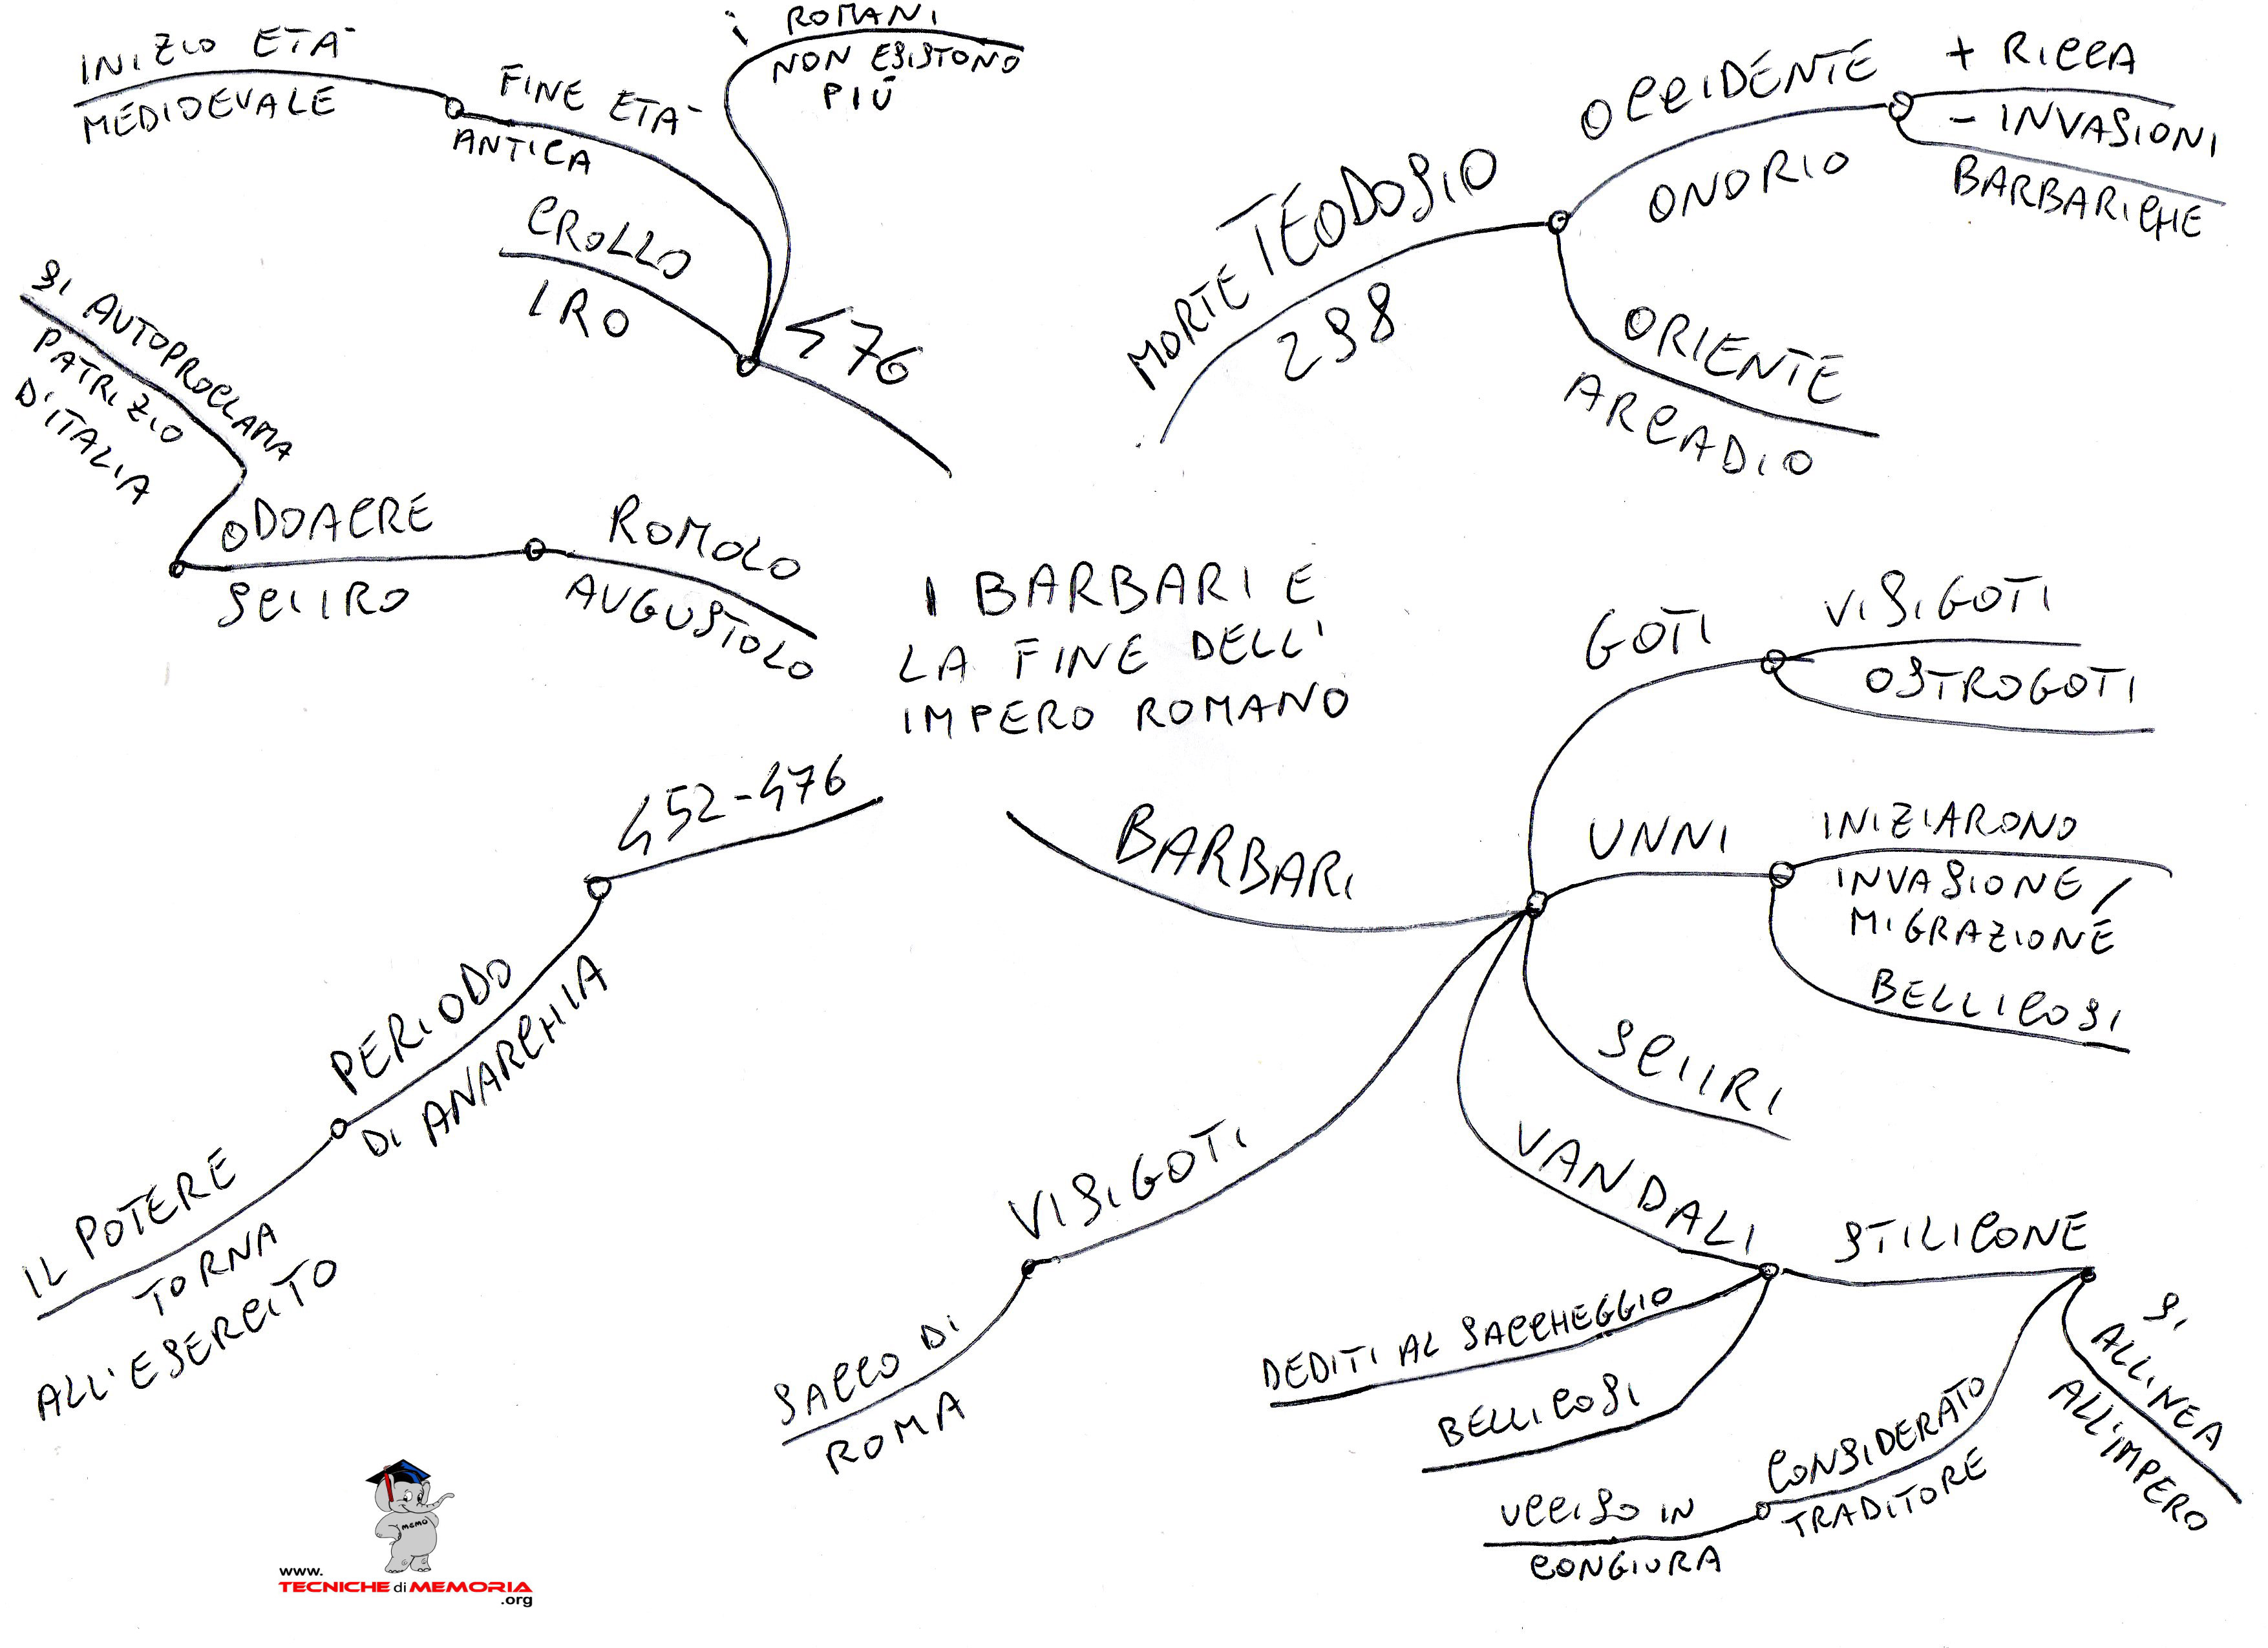 I BARBARI E
LA FINE DELL'
IMPERO ROMANO
MORTE TEODOSIO
298
OCCIDENTE
ONORIO
+ RICCA
- INVASIONI
BARBARICHE
ORIENTE
ARCADIO
BARBARI
GOTI
VISIGOTI
OSTROGOTI
UNNI
INIZIARONO
INVASIONE /
MIGRAZIONE
BELLICOSI
SCIIRI
VANDALI
STILICONE
SI
ALLINEA
ALL'IMPERO
CONSIDERATO
TRADITORE
UCCISO IN
CONGIURA
DEDITI AL SACCHEGGIO
BELLICOSI
VISIGOTI
SACCO DI
ROMA
452-476
PERIODO
DI ANARCHIA
IL POTERE
TORNA
ALL'ESERCITO
ROMOLO
AUGUSTOLO
ODOACRE
SCIIRO
SI AUTOPROCLAMA
PATRIZIO
D'ITALIA
476
CROLLO
IRO
FINE ETA'
ANTICA
INIZIO ETA'
MEDIOEVALE
i ROMANI
NON ESISTONO
PIÙ
MEMO
www.
TECNICHE di MEMORIA
.org